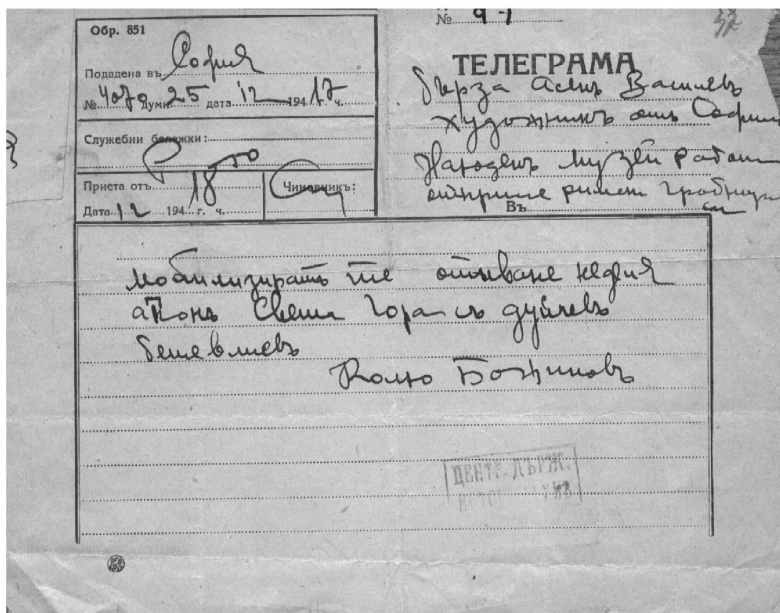 Обр. 851
Подадена въ София
№ 4070 думи 25 дата 12 194 17 ч.
Служебни бележки:
Приета отъ
Дата 12 194 г. ч. 18 50
Чиновникъ:
№
ТЕЛЕГРАМА
бърза Асенъ Василевъ
художникъ отъ София
Народенъ музей
римски
Въ
мобилизиратъ те отиване неделя
атонъ Света Гора съ дуйчевъ
бешевлиевъ
Божиновъ
ЦЕНТР. ДЪРЖ.